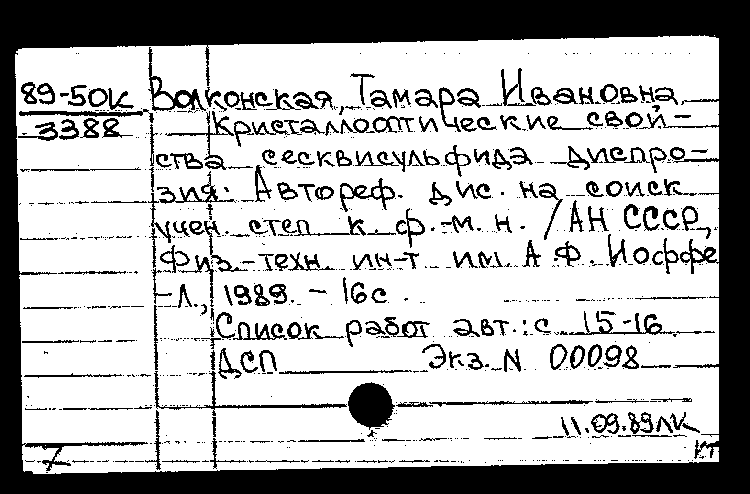 89-50К Волконская, Тамара Ивановна
3388 Кристаллооптические свой-
ства сесквисульфида диспро-
зия: Автореф. дис. на соиск
учен. степ к. ф.-м. н. /АН СССР,
Физ.-техн. ин-т им. А Ф. Иоффе
-Л., 1989. - 16с.
Список работ авт.: с 15-16
ДСП Экз. N 00098
11.09.89ЛК
КТ